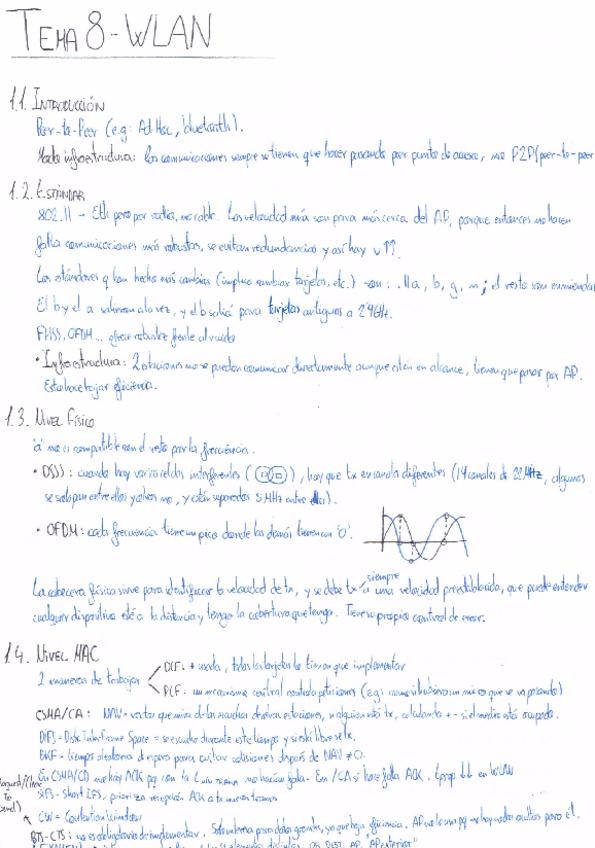 TEMA 8 - WLAN
1.1. INTRODUCCIÓN
Peer-to-Peer (e.g: Ad-Hoc, bluetooth).
Modo infraestructura: las comunicaciones siempre se tienen que hacer pasando por punto de acceso, no P2P (peer-to-peer
1.2. ESTÁNDAR
802.11 - Eth pero por radio, no cable. Las velocidad más son para más cerca del AP, porque entonces no hacen
falta comunicaciones más robustas, se evitan redundancias y así hay v ↑↑.
Los estándares q han hecho más cambios (implica cambiar tarjetas, etc.) son: .11a, b, g, n; el resto son enmiendas
El b y el a salieron a la vez, y el b salió para tarjetas antiguas a 2'4GHz.
FHSS, OFDM... ofrece robustez frente al ruido
• Infraestructura: 2 estaciones no se pueden comunicar directamente aunque estén en alcance, tienen que pasar por AP.
Esto hace bajar eficiencia.
1.3. NIVEL FÍSICO
'a' no es compatible con el resto por la frecuencia.
• DSSS: cuando hay varias celdas interferentes ( ), hay que tx en canales diferentes (14 canales de 22MHz, algunos
se solapan entre ellos y otros no, y están separados 5MHz entre ellos).
• OFDM: cada frecuencia tiene un pico donde las demás tienen un '0'.
La cabecera física sirve para identificar la velocidad de tx, y se debe tx siempre a una velocidad preestablecida, que puede entender
cualquier dispositivo esté a la distancia y tenga la cobertura que tenga. Tiene su propio control de error.
1.4. NIVEL MAC
2 maneras de trabajar
DCF: + usada, todas las tarjetas lo tienen que implementar
PCF: un mecanismo central controla peticiones (e.g: como si hubiera un micro que se va pasando)
CSMA/CA: NAV = vector que mira de las demás estaciones, si alguien más tx, calculando +- si el medio está ocupado.
DIFS - Distr. InterFrame Space = se escucha durante este tiempo y si está libre se tx.
BKF = tiempo aleatorio de espera para evitar colisiones después de NAV ≠ 0.
En CSMA/CD no hay ACK pq con la no hacían falta. En /CA sí hace falta ACK. t prop ↓↓ en WLAN
SIFS - Short IFS, prioriza recepción ACK a tu nueva trama
CW = Contention window
RTS-CTS: no es obligatorio de implementar. Solo para datos grandes, ya que baja eficiencia. AP no lo usa pq no hay nodos ocultos para él.